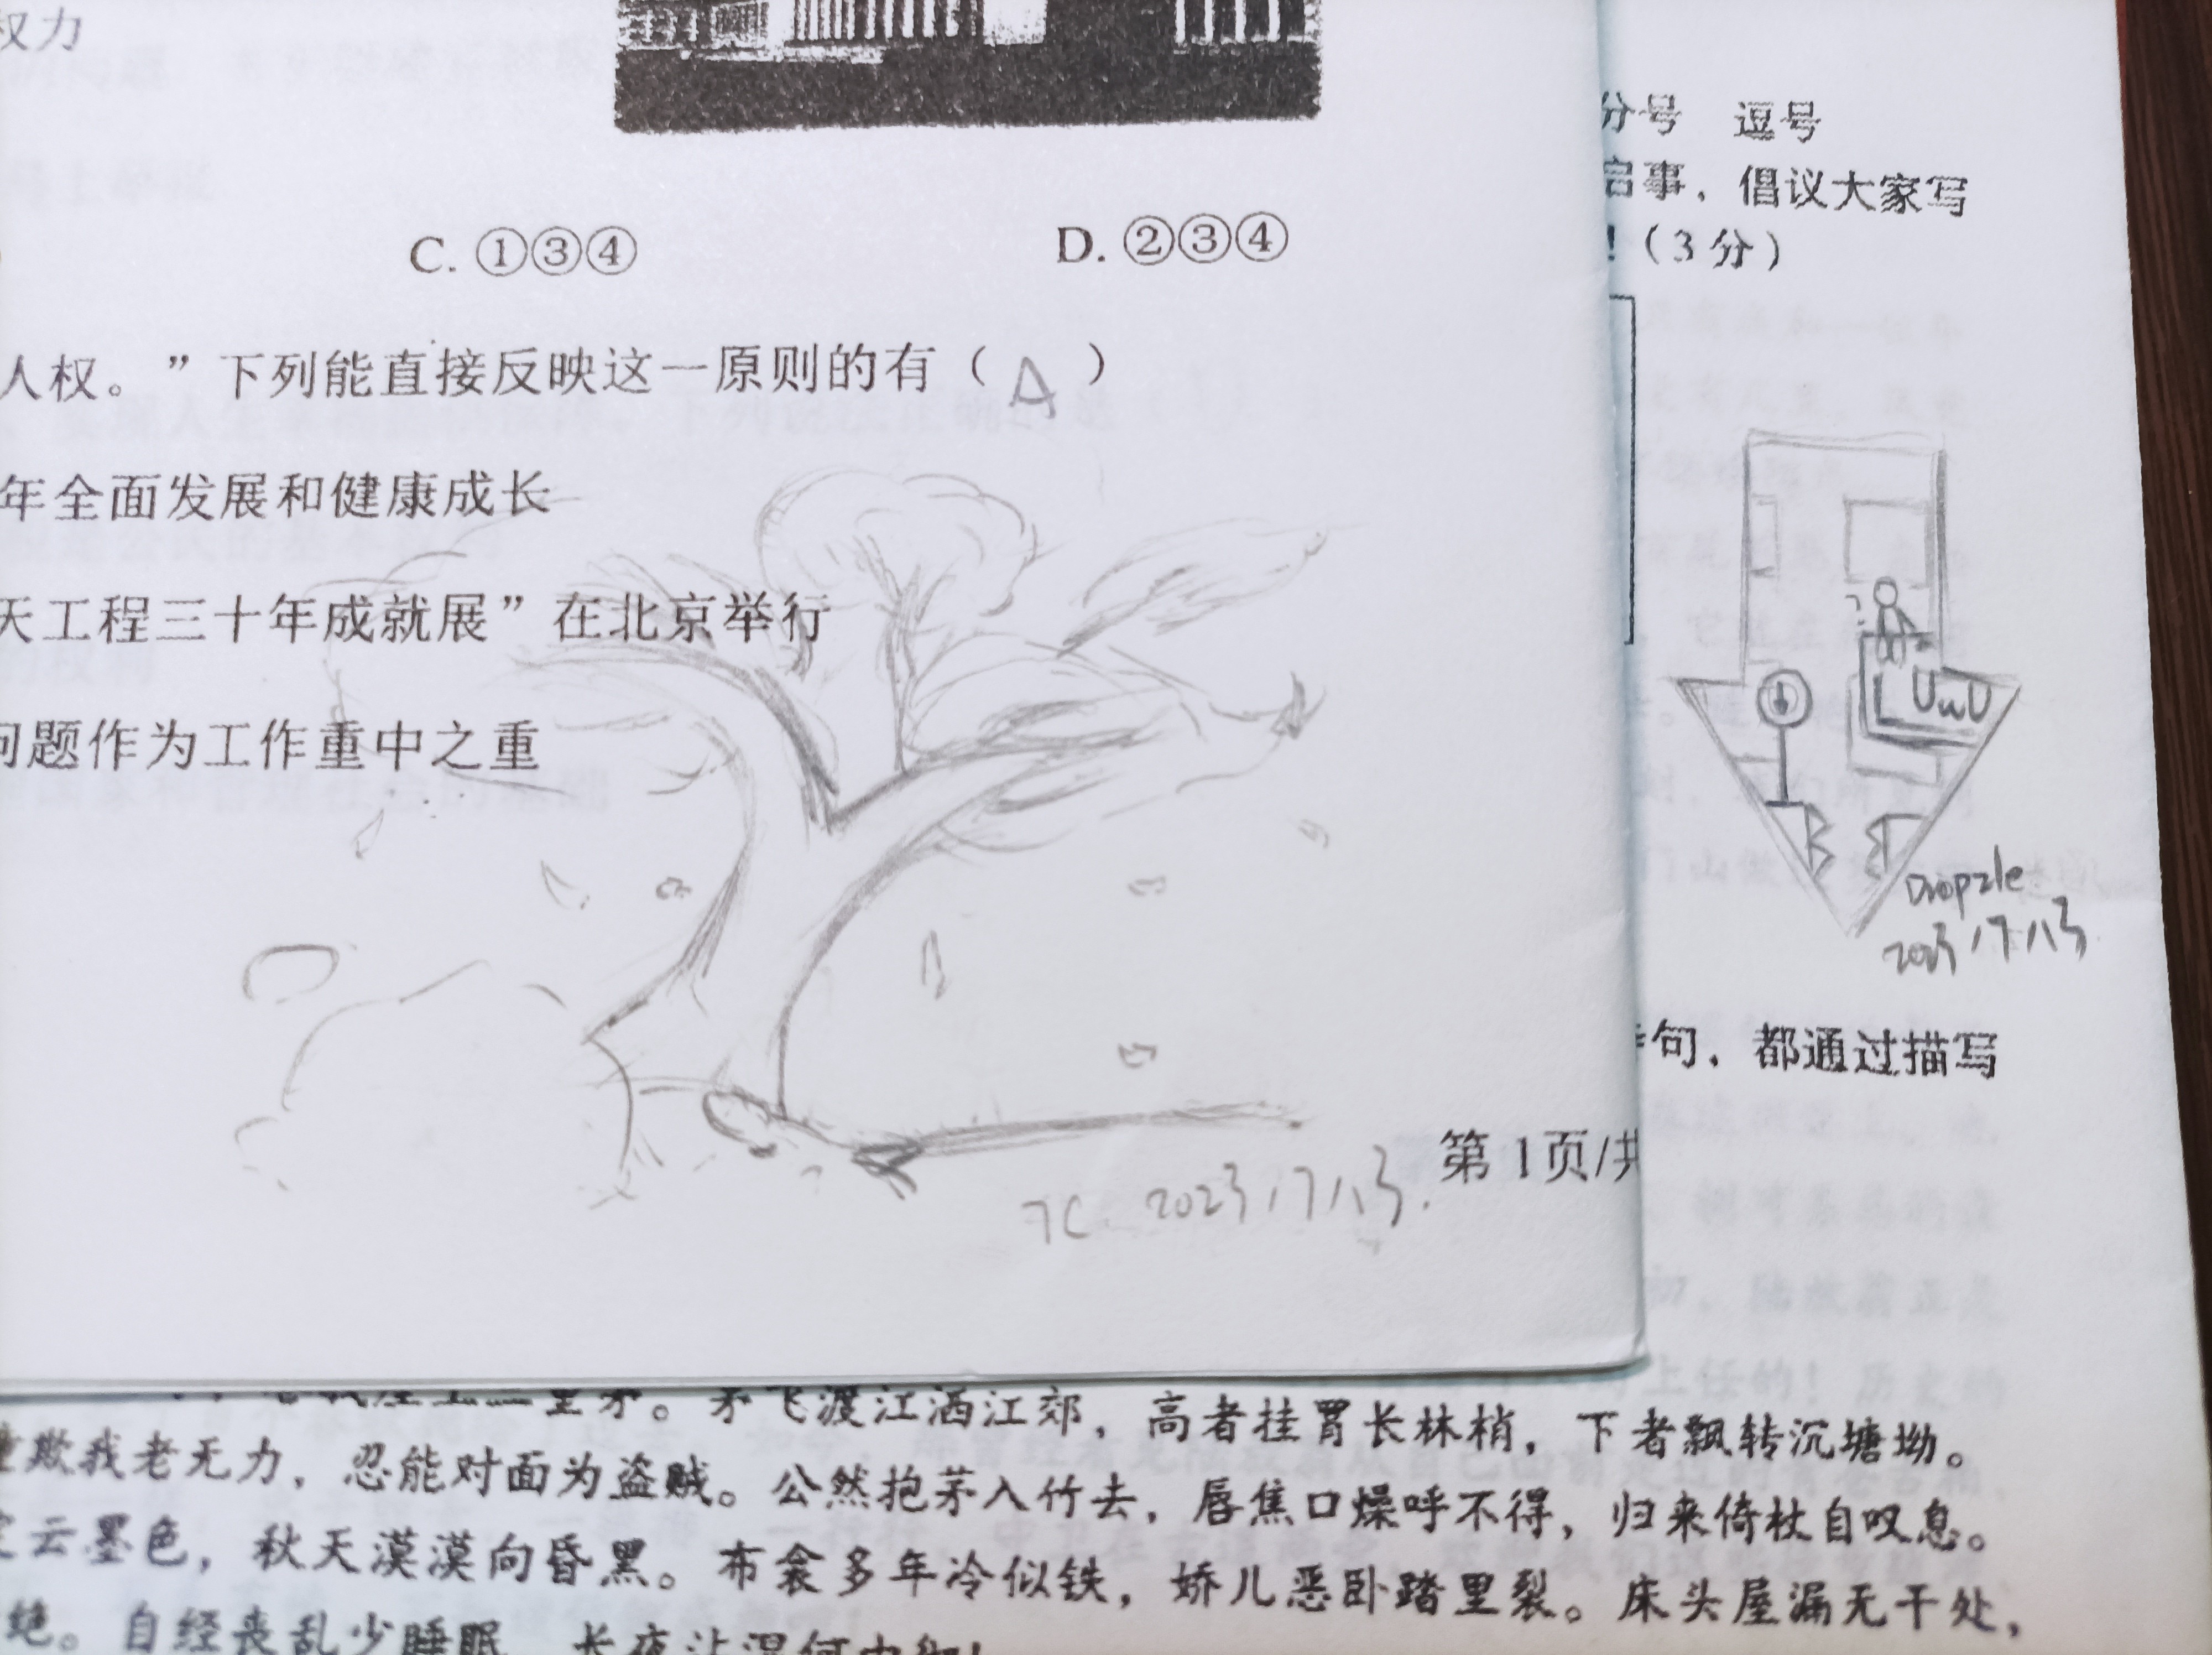 权力
C. ①③④ D. ②③④
人权。”下列能直接反映这一原则的有（ A ）
年全面发展和健康成长
天工程三十年成就展”在北京举行
问题作为工作重中之重
7C. 2023/7/13.
第 1页/共
分号 逗号
启事，倡议大家写
！（3 分）
UwU
Dropzle
2023/7/13
句，都通过描写
茅。茅飞渡江洒江郊，高者挂罥长林梢，下者飘转沉塘坳。
童欺我老无力，忍能对面为盗贼。公然抱茅入竹去，唇焦口燥呼不得，归来倚杖自叹息。
定云墨色，秋天漠漠向昏黑。布衾多年冷似铁，娇儿恶卧踏里裂。床头屋漏无干处，
绝。自经丧乱少睡眠，长夜沾湿何由彻！